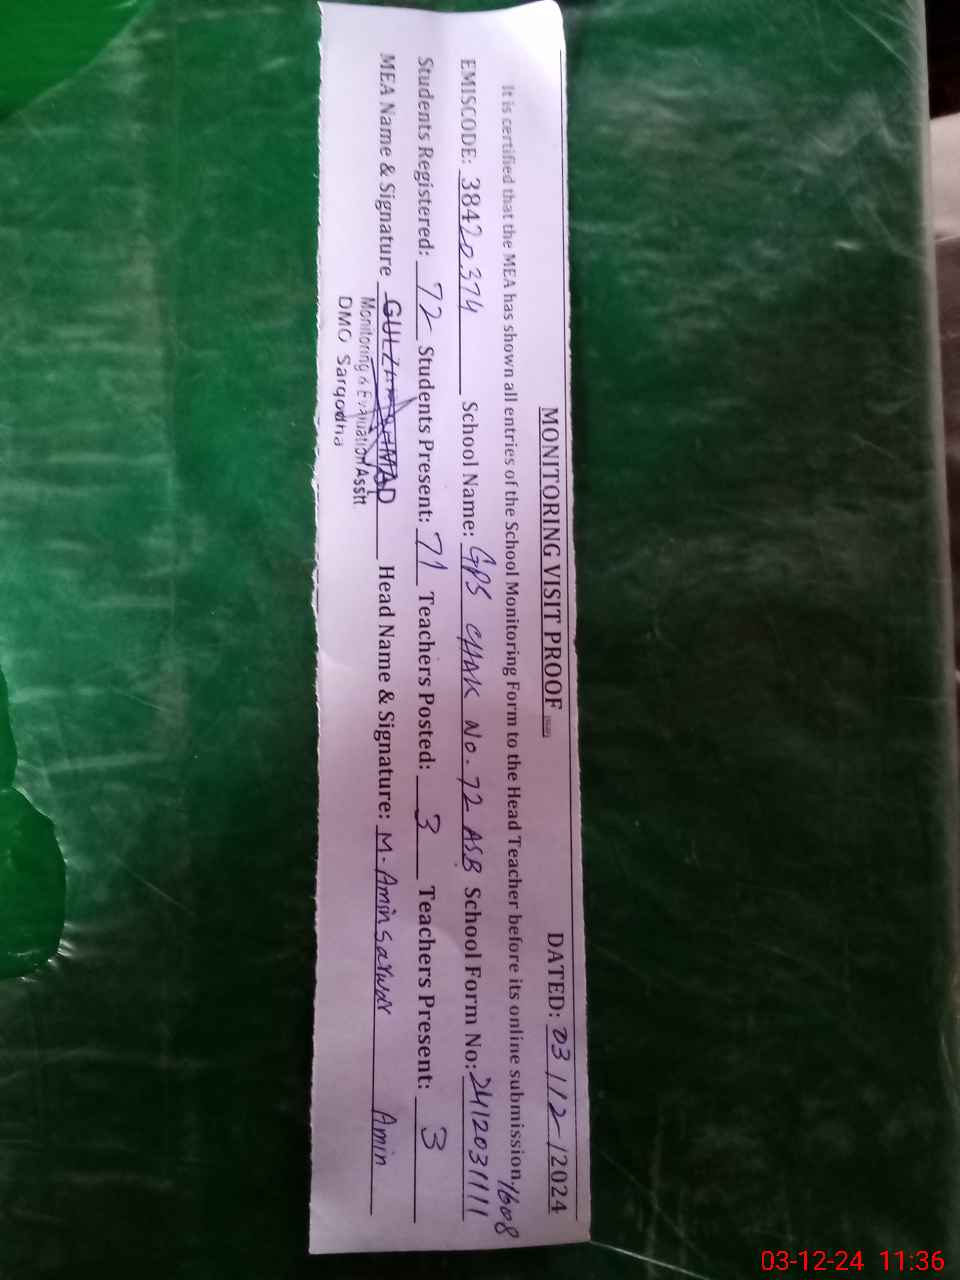 MONITORING VISIT PROOF DATED: 03/12/2024
It is certified that the MEA has shown all entries of the School Monitoring Form to the Head Teacher before its online submission.
EMISCODE: 38420374 School Name: GPS CHAK No. 72 ASB School Form No: 2412031111
1608
Students Registered: 72 Students Present: 71 Teachers Posted: 3 Teachers Present: 3
MEA Name & Signature AHMAD Head Name & Signature: M. Amin Sarwar Amin
Monitoring & Evaluation Asstt.
DMO Sargodha
03-12-24 11:36